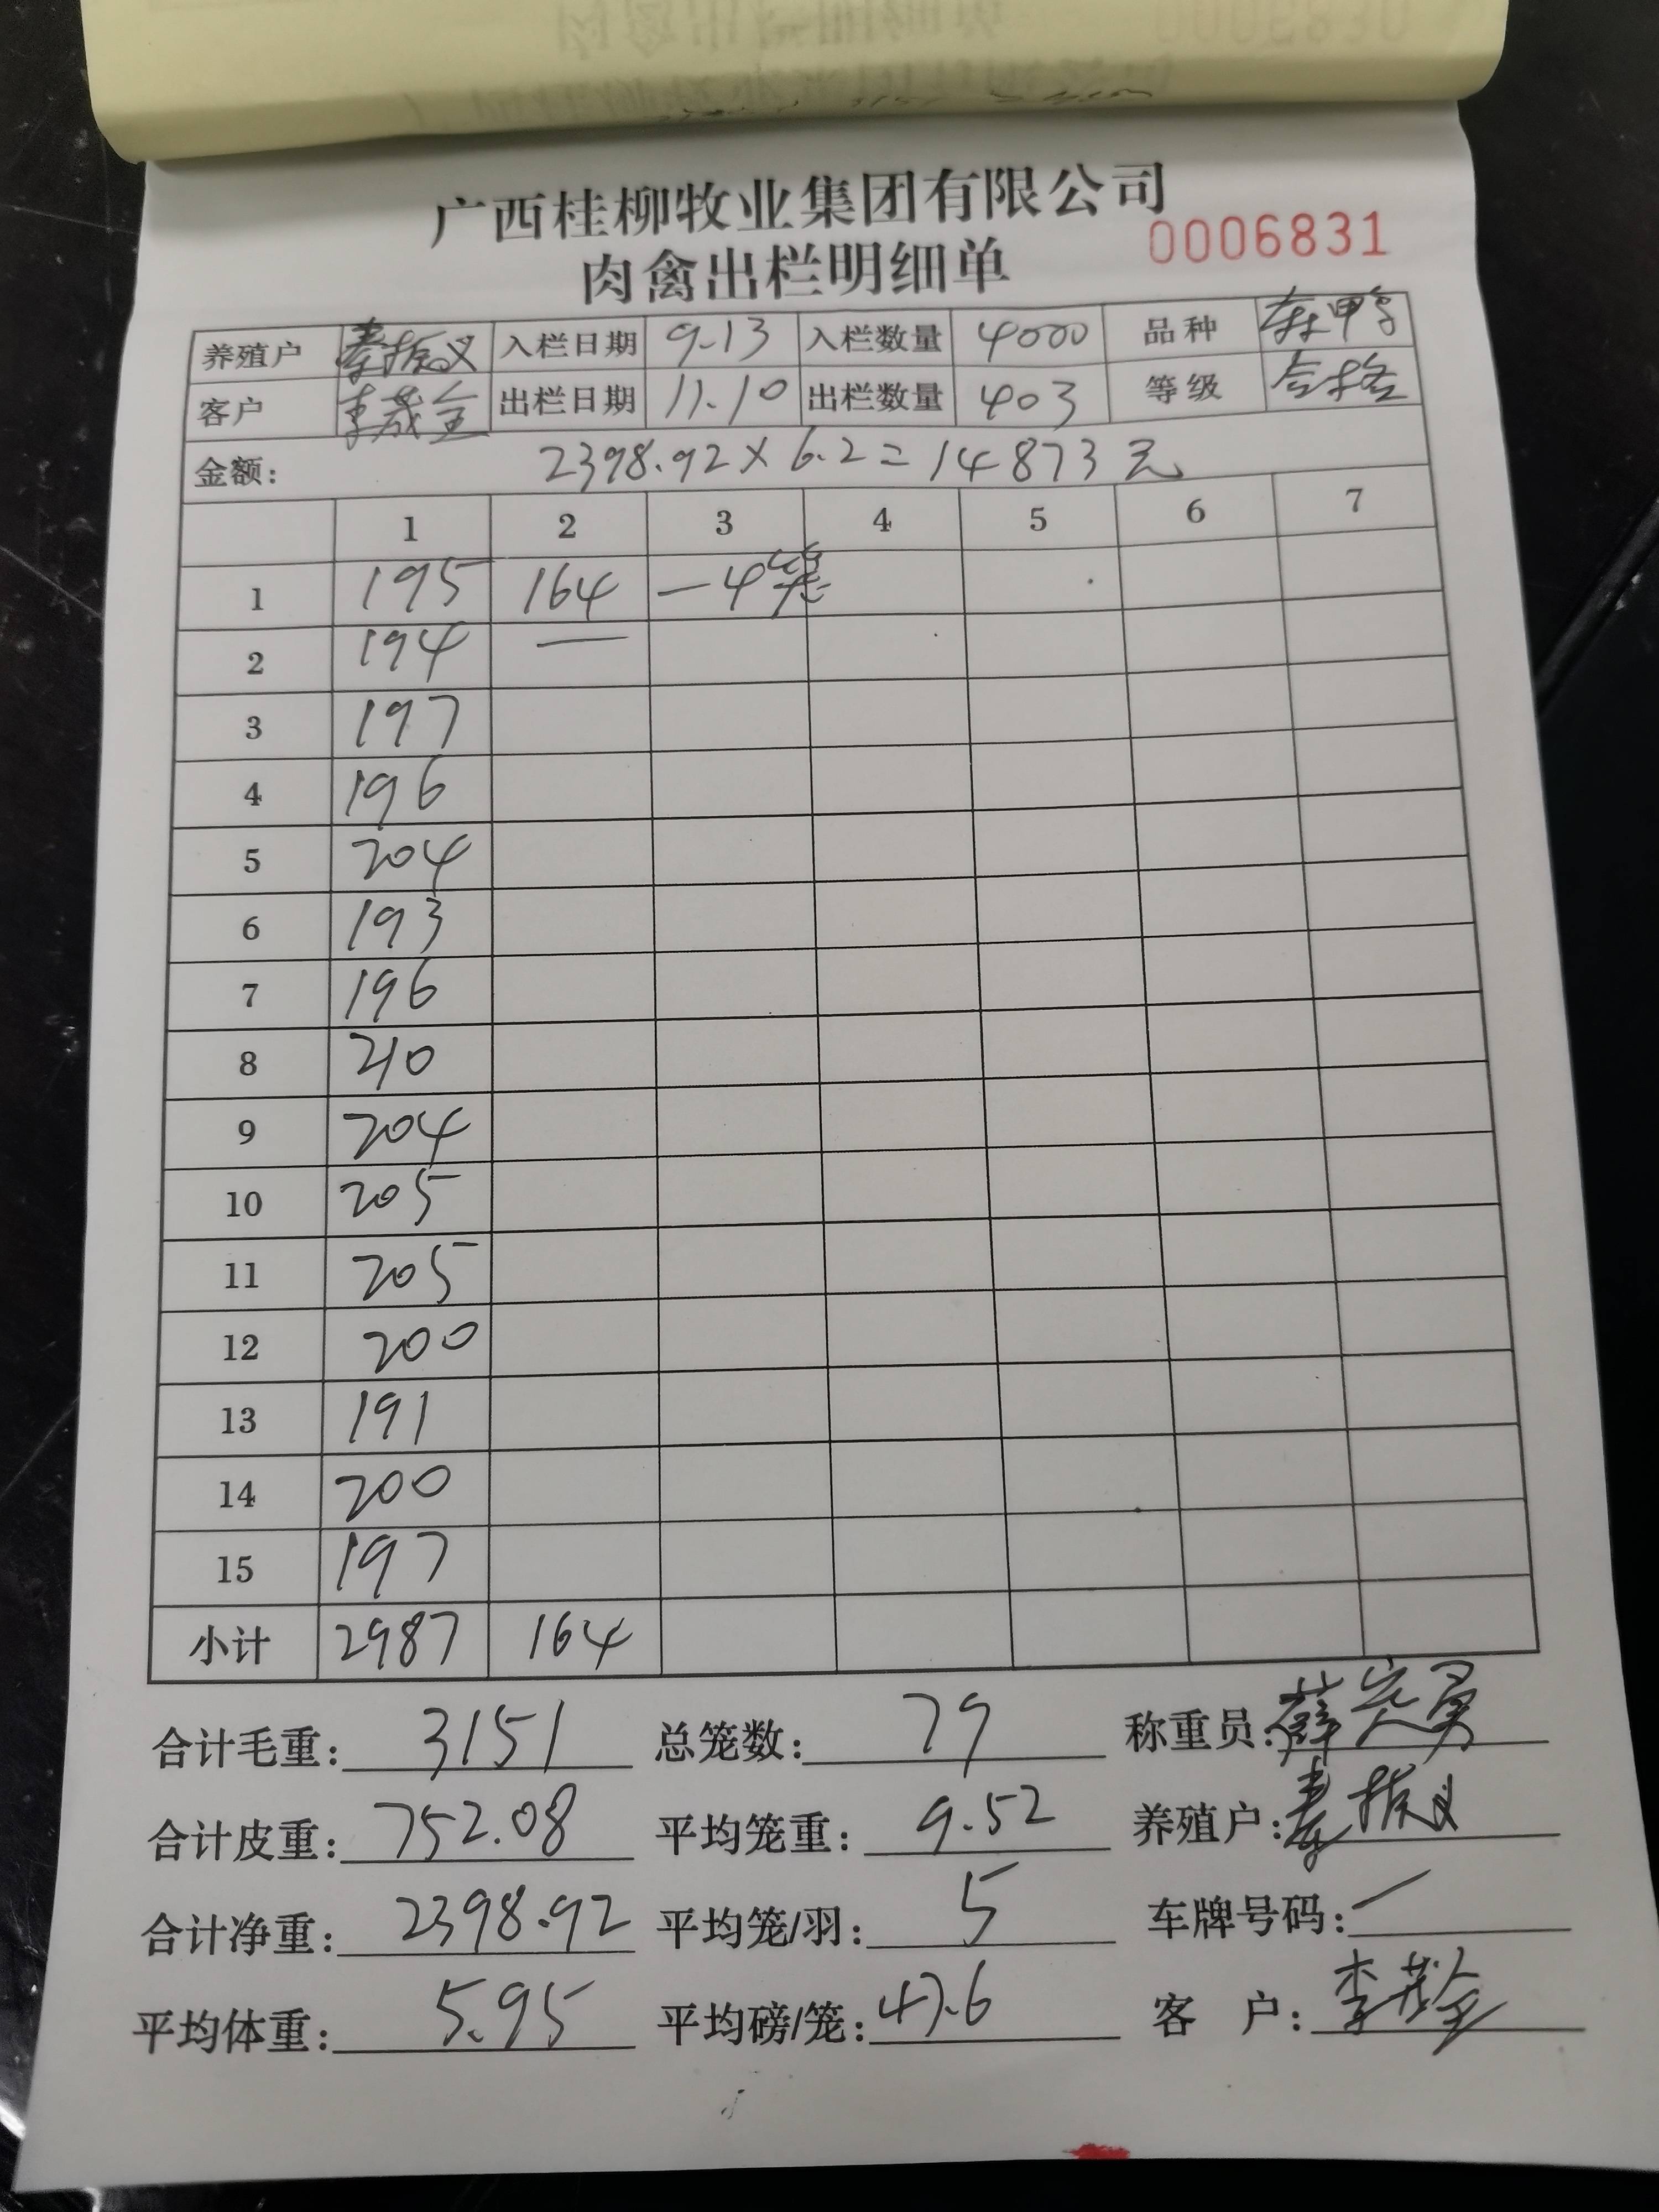 广西桂柳牧业集团有限公司
肉禽出栏明细单 0006831
养殖户 秦振义 入栏日期 9.13 入栏数量 4000 品种
客户 李茂全 出栏日期 11.10 出栏数量 403 等级 合格
金额: 2398.92×6.2=14873元
1 2 3 4 5 6 7
1 195 164 —4笼
2 194 —
3 197
4 196
5 204
6 193
7 196
8 210
9 204
10 205
11 205
12 200
13 191
14 200
15 197
小计 2987 164
合计毛重: 3151 总笼数: 79 称重员:
合计皮重: 752.08 平均笼重: 9.52 养殖户: 秦振义
合计净重: 2398.92 平均笼/羽: 5 车牌号码: /
平均体重: 5.95 平均磅/笼: 47.6 客 户: 李茂全